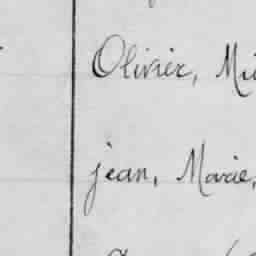 Olivier, Mi
jean, Marie,